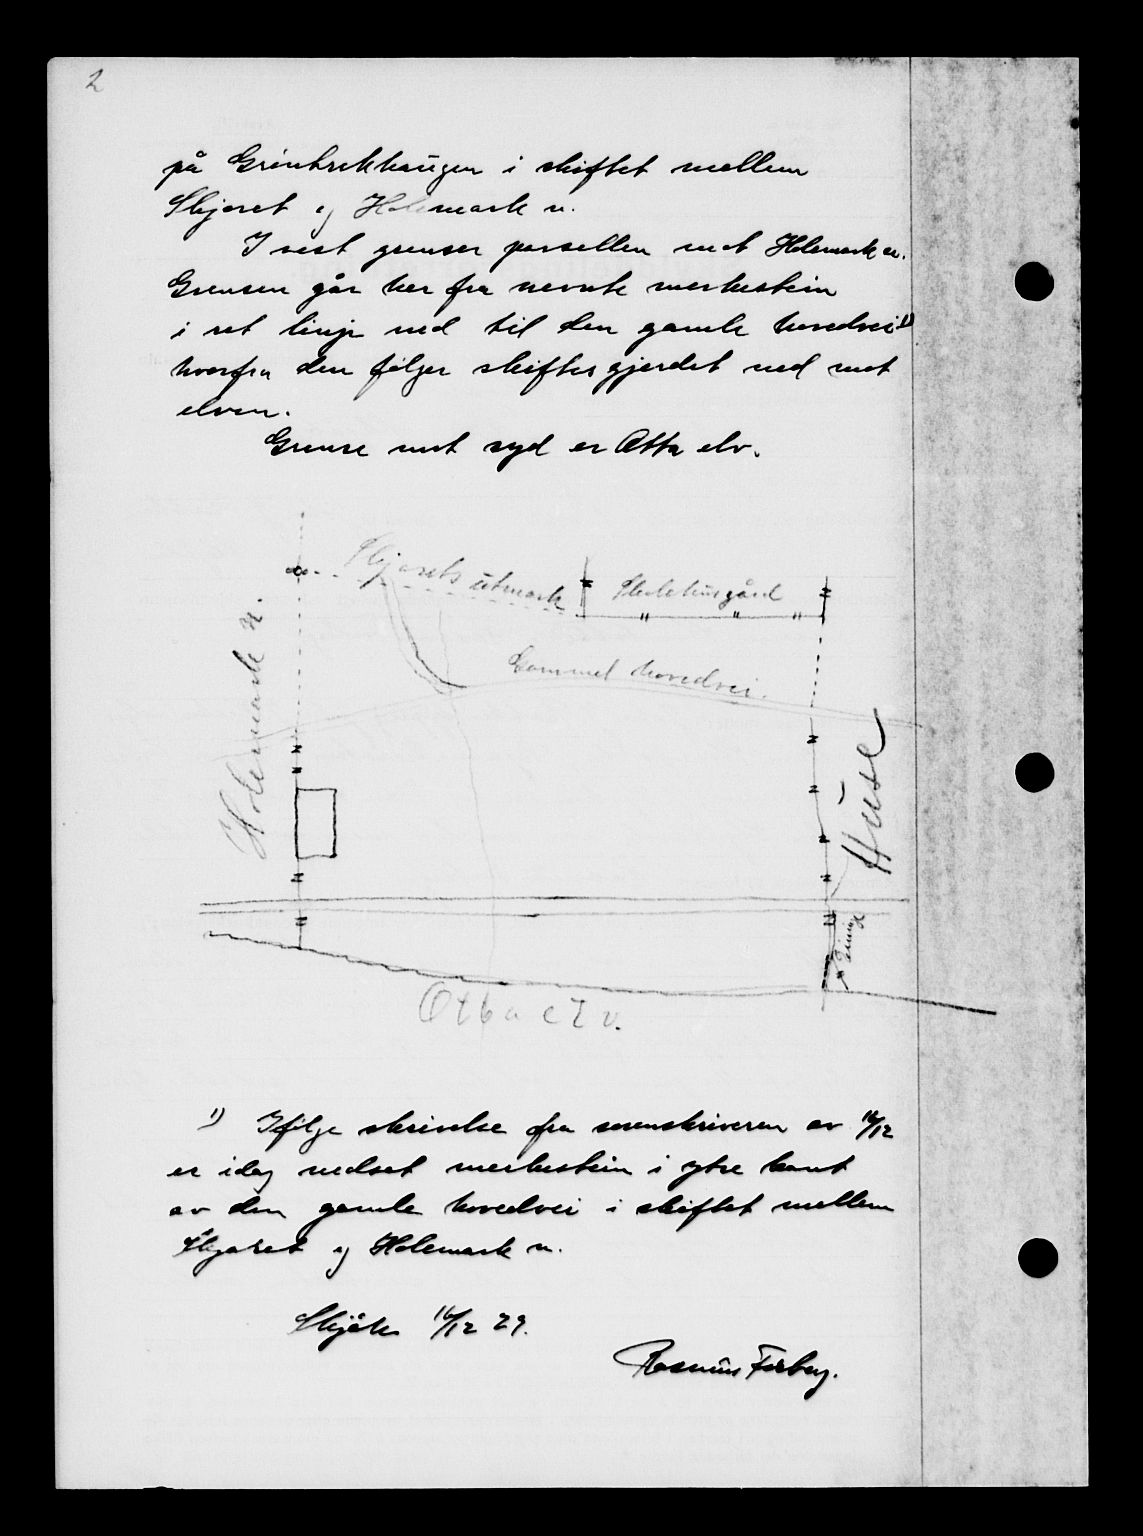 2
på Grinbrekhaugen i skiftet mellem
Skjøret og Holemark n.
I vest grenser parsellen mot Holemark n.
Grensen går her fra nevnte merkestein
i ret linje ned til den gamle hovedvei 1)
hvorfra den følger skiftesgjerdet ned mot
elven.
Grense mot syd er Otta elv.
utmark
gård
Gammel hovedvei.
Holemark n.
Huse
Otta elv.
1) Ifølge skrivelse fra sorenskriveren av 16/12
er idag nedsat merkestein i ytre kant
av den gamle hovedvei i skiftet mellem
Skjøret og Holemark n.
Skjåk 16/12 29.
Rasmus Forberg.